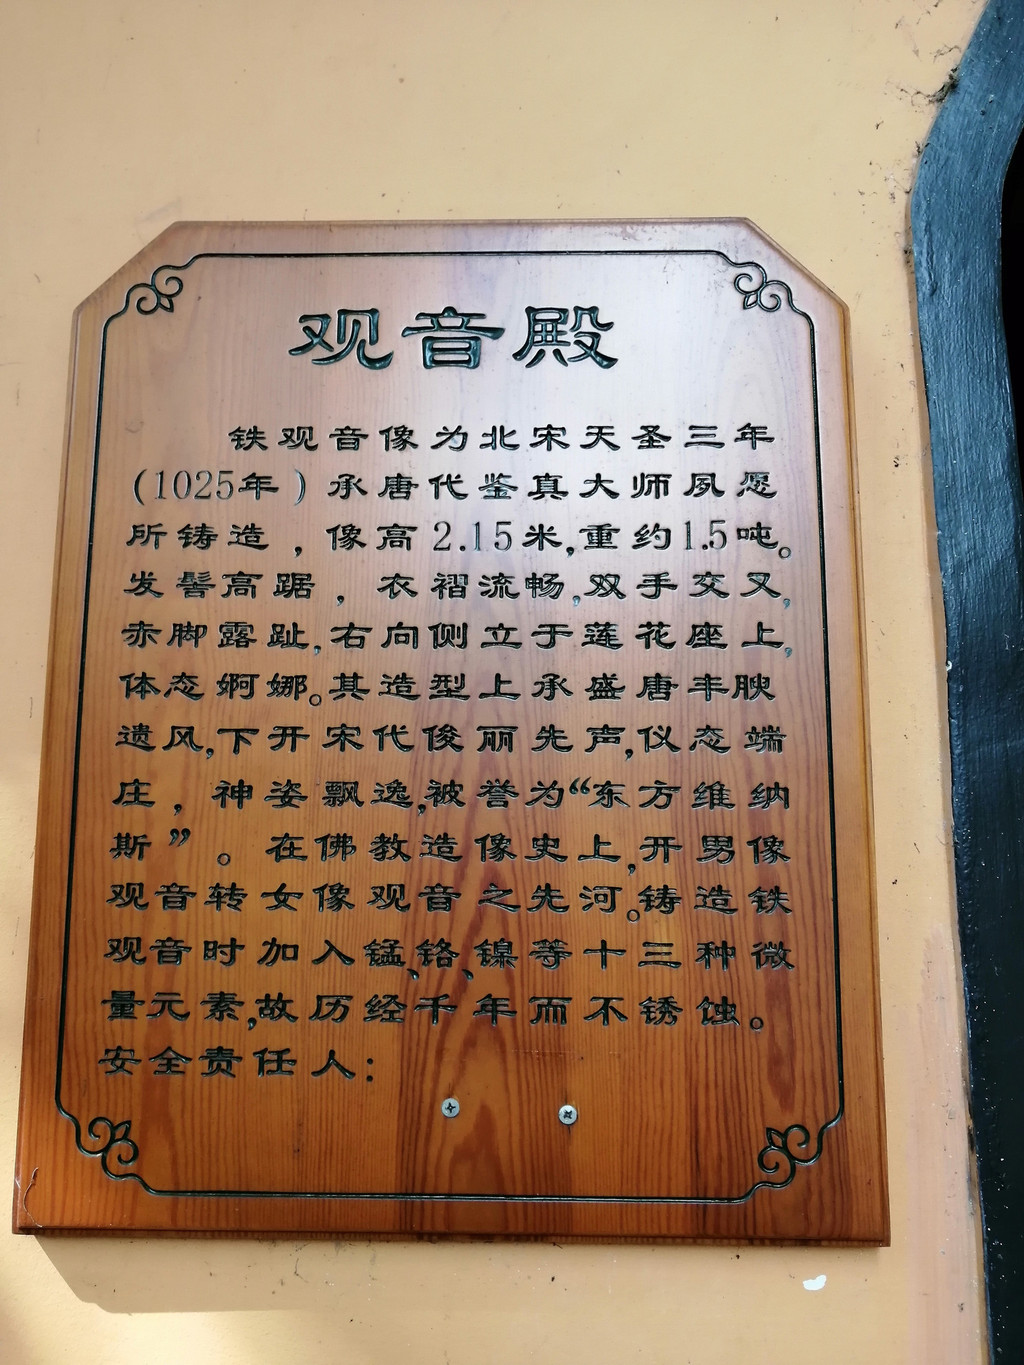 观音殿
铁观音像为北宋天圣三年
(1025年)承唐代鉴真大师夙愿
所铸造，像高2.15米,重约1.5吨。
发髻高踞，衣褶流畅,双手交叉,
赤脚露趾,右向侧立于莲花座上,
体态婀娜。其造型上承盛唐丰腴
遗风,下开宋代俊丽先声,仪态端
庄，神姿飘逸,被誉为“东方维纳
斯”。在佛教造像史上,开男像
观音转女像观音之先河。铸造铁
观音时加入锰、铬、镍等十三种微
量元素,故历经千年而不锈蚀。
安全责任人：